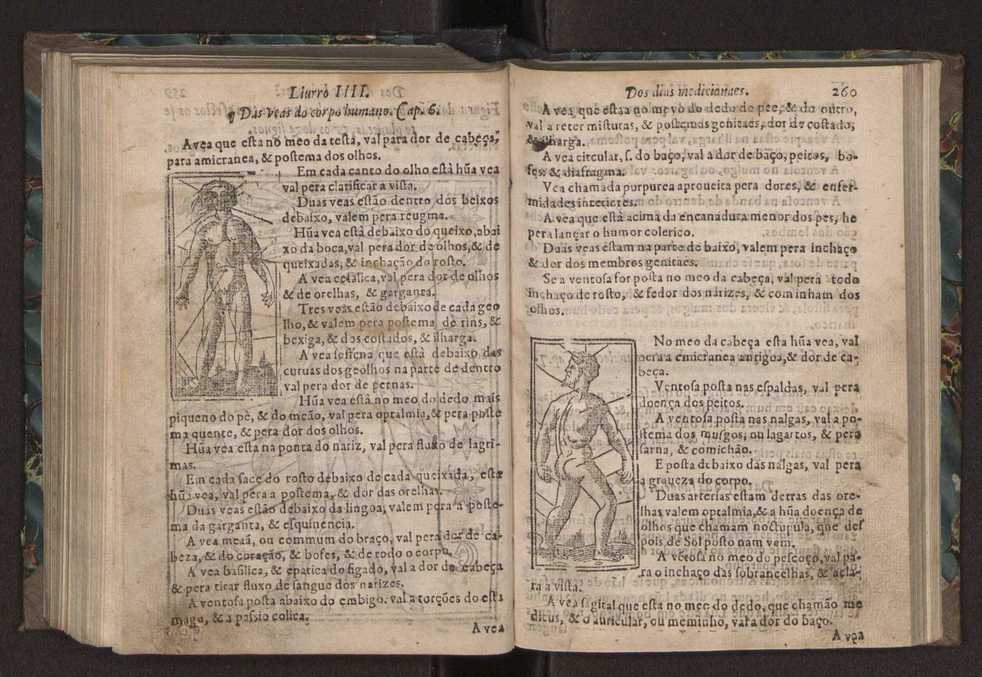 Liurro IIII.
¶ Das veas do corpo humano. Cap. 6.
A vea que esta no meo da testa, val para dor de cabeça,
para amicranea, & postema dos olhos.
Em cada canto do olho està hũa vea
val pera clarificar a vista.
Duas veas estão dentro dos beixos
debaixo, valem pera reugma.
Hũa vea està debaixo do queixo, abai
xo da boca, val pera dor de olhos, & de
queixadas, & inchação do rosto.
A vea cefalica, val pera dor de olhos
& de orelhas, & garganta.
Tres veas estão debaixo de cada geo
lho, & valem pera postema de rins, &
bexiga, & dos costados, & ilharga.
A vea que està debaixo das
curuas dos geolhos na parte de dentro
val pera dor de pernas.
Hũa vea està no meo do dedo mais
piqueno do pè, & do meão, val pera optalmia, & pera poste
ma quente, & pera dor dos olhos.
Hũa vea esta na ponta do nariz, val pera fluxo de lagri-
mas.
Em cada face do rosto debaixo de cada queixada, està
hũa vea, val pera a postema, & dor das orelhas.
Duas veas estão debaixo da lingoa, valem pera a poste-
ma da garganta, & esquinencia.
A vea meaã, ou commum do braço, val pera dor de ca-
beza, & do coração, & bofes, & de todo o corpo.
A vea basilica, & epatica do figado, val a dor de cabeça
& pera tirar fluxo de sangue dos narizes.
A ventosa posta abaixo do embigo. val a torções do esta
mago, & a passio colica.
A vea
Dos dias mediciamaes. 260
A vea que estaa no meyo do dedo do pee, & do outro,
val a reter misturas, & postemas genitaes, dor de costado,
& ilharga.
A vea circular, s. do baço, val a dor de baço, peitos, bo-
fes, & diafragma.
Vea chamada purpurea aproueita pera dores, & enfer-
midades interiores.
A vea que està acima da encanadura menor dos pes, he
pera lançar o humor colerico.
Duas veas estam na parte de baixo, valem pera inchaço
& dor dos membros genitaes.
Se a ventosa for posta no meo da cabeça, val pera todo
inchaço de rosto, & fedor dos narizes, & cominham dos
olhos.
No meo da cabeça esta hũa vea, val
pera a emicranea antigoa, & dor de ca-
beça.
Ventosa posta nas espaldas, val pera
doença dos peitos.
A ventosa posta nas nalgas, val a po-
stema dos musgos, ou lagartos, & pera
sarna, & comichão.
E posta debaixo das nalgas, val pera
a graueza do corpo.
Duas arterias estam detras das ore-
lhas, valem optalmia, & a hũa doença de
olhos que chamam noctupula, que des
pois de Sol posto nam vem.
A vētosa no meo do pescoço, val pa-
ra o inchaço das sobrancelhas, & acla-
ra a vista.
A vea sigital que esta no meo do dedo, que chamão me
dicus, & o auricular, ou meminho, val a dor do baço.
A vea